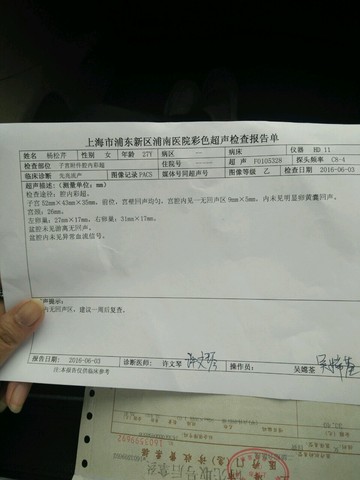 上海市浦东新区浦南医院彩色超声检查报告单
姓名 杨松芹 性别 女 年龄 27Y 病区 病床 仪器 HD 11
检查部位 子宫附件腔内彩超 超声号 F0105328 探头频率 C8-4
临床诊断 先兆流产 图像记录 PACS 媒体号同超声号 图像等级 乙 检查日期 2016-06-03
超声描述:(测量单位:mm)
检查途径:腔内彩超。
子宫 52mm×43mm×35mm, 前位, 宫壁回声均匀, 宫腔内见一无回声区 9mm×5mm, 内未见明显卵黄囊回声。
宫颈: 26mm。
左卵巢: 27mm×17mm, 右卵巢: 31mm×17mm。
盆腔未见游离无回声。
盆腔内未见异常血流信号。
声提示:
内无回声区, 建议一周后复查。
报告日期: 2016-06-03 诊断医师: 许文琴 操作员: 吴嫦荃
注:本报告仅供临床参考